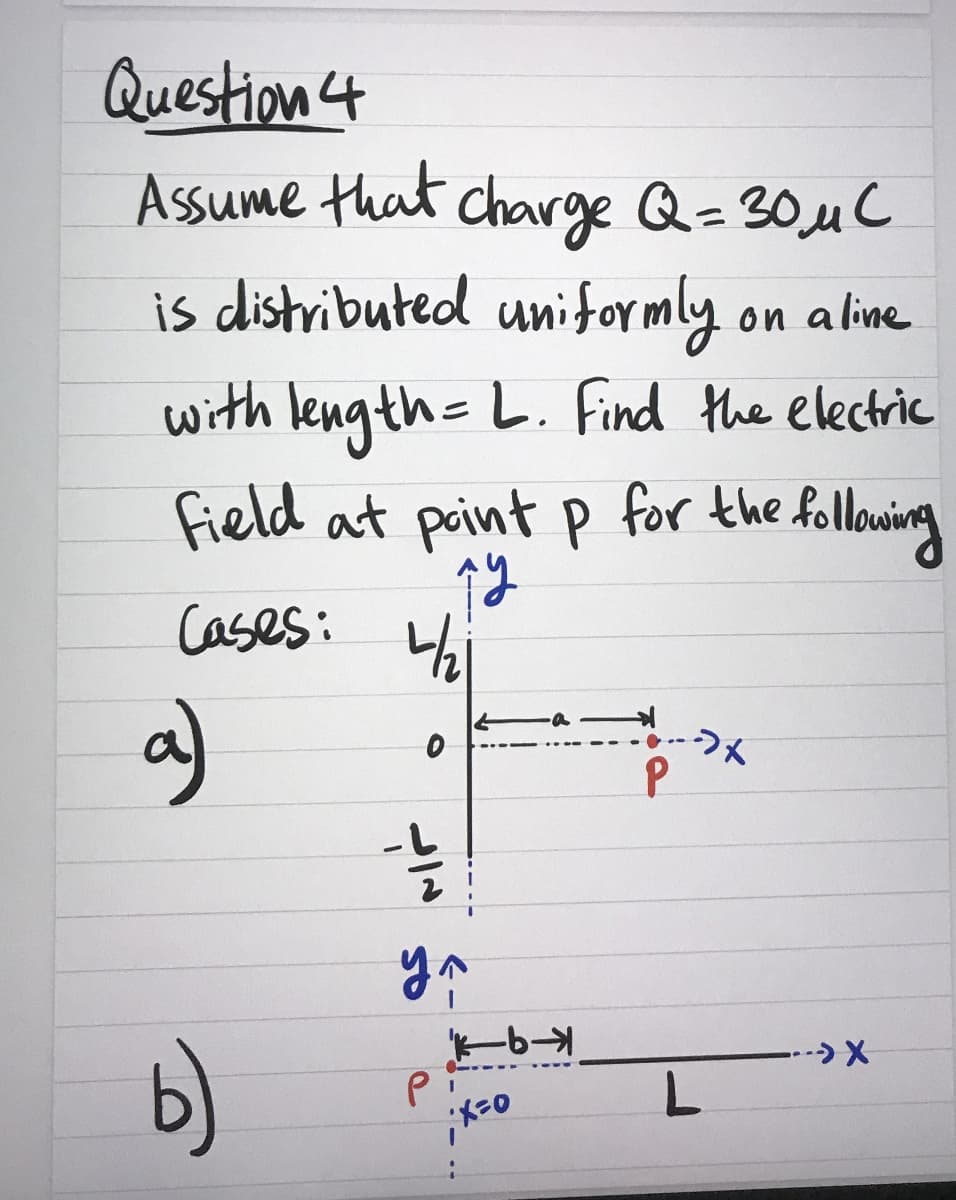 Question 4
Assume that charge Q = 30 μC
is distributed uniformly on a line
with length = L. Find the electric
field at point p for the following
Cases:
y
L/2
a)
a
0
P
x
-L/2
y
b
b)
P
x=0
L
x